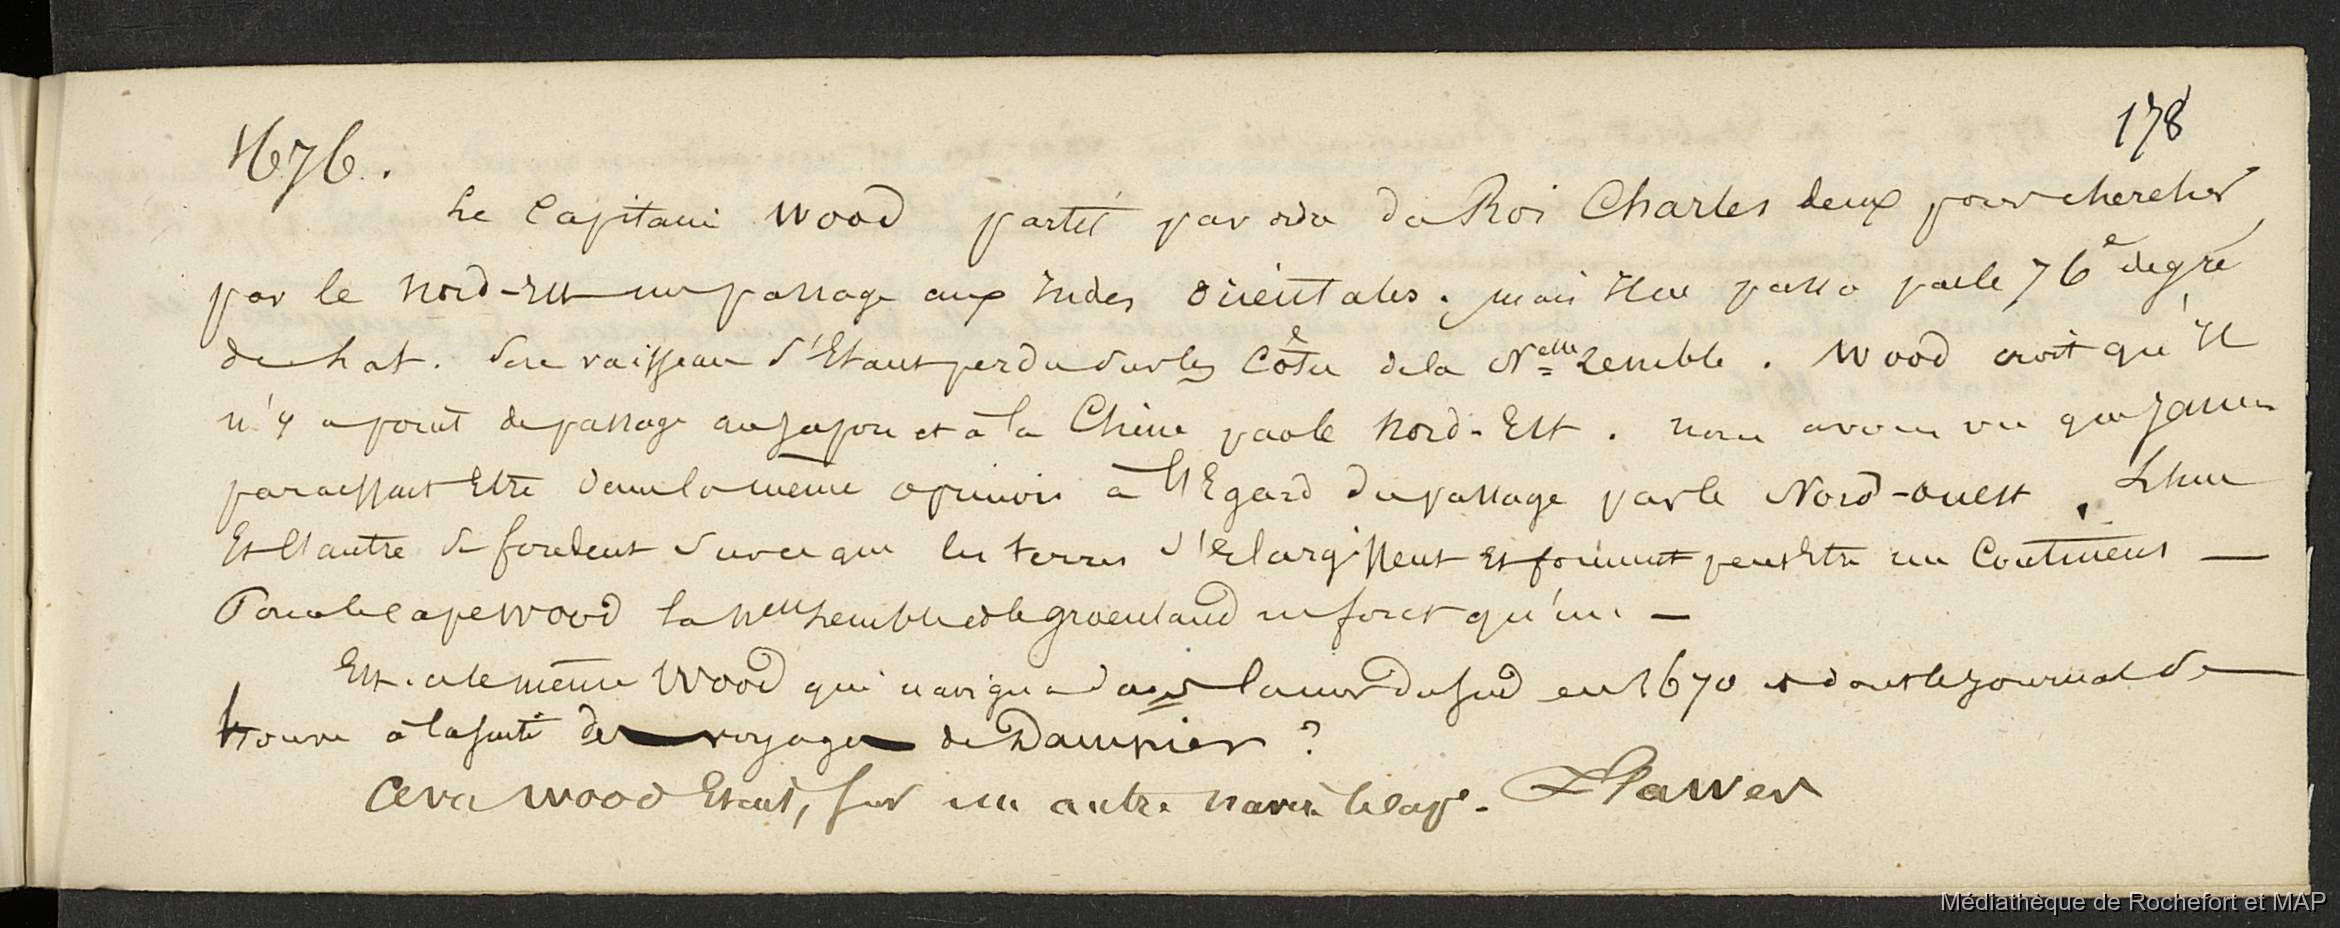 178
1676.
Le Capitaine Wood partit par ordre du Roi Charles deux pour chercher
par le Nord-Est un passage aux Indes Orientales. mais il ne passa pas le 76e degré
de Lat. son vaisseau s'Etant perdu sur les Côtes de la Nelle Zemble. Wood croit qu'il
n'y a point de passage au Japon et à la Chine par le Nord-Est. nous avons vu que James
paraissait Etre dans la même opinion à l'Egard du passage par le Nord-ouest. L'un
Et l'autre se fondent sur ce que les terres s'Elargissent Et forment peut Etre un Continent —
Pour le cape Wood la Nelle Zemble et le Groenland ne font qu'un —
Est-ce le même Wood qui navigua dans la mer du Sud en 1670 et dont le journal se
trouve à la suite des voyages de Dampier ?
Wood Etant, sur un autre navire le cape. Flawes
Médiathèque de Rochefort et MAP